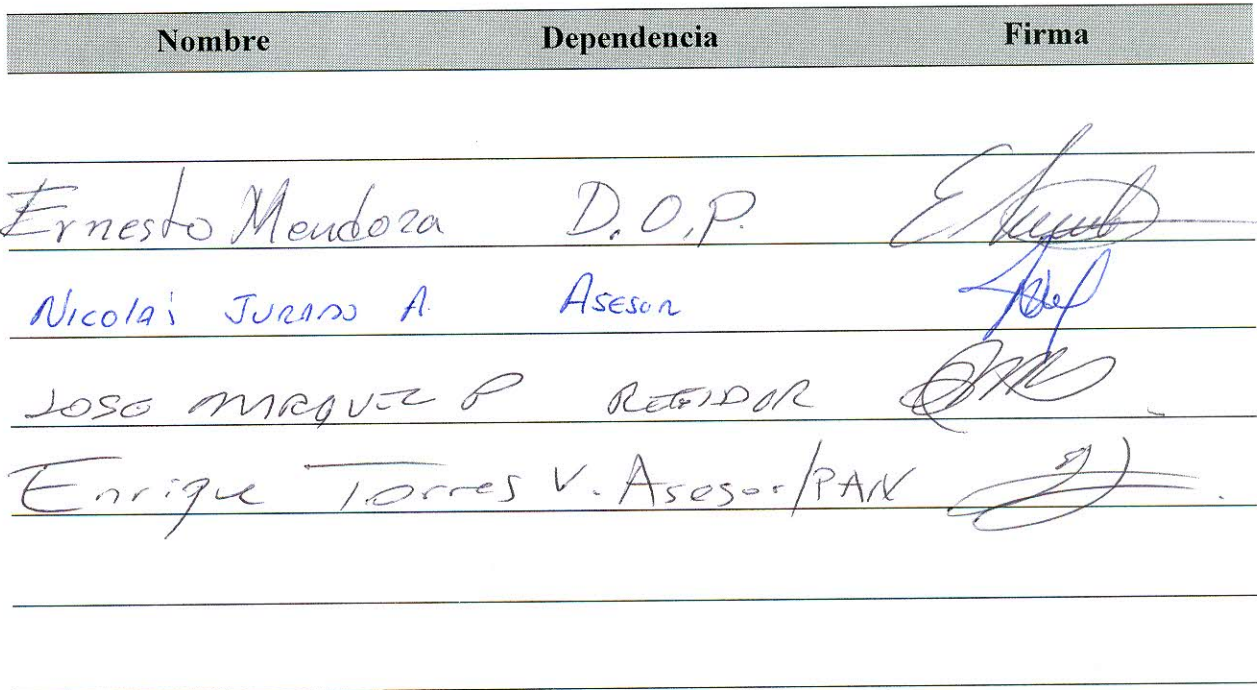 Nombre Dependencia Firma
Ernesto Mendoza D.O.P.
Nicolás Jurado A. Asesor
Jose Marquez P Regidor
Enrique Torres V. Asesor/PAN